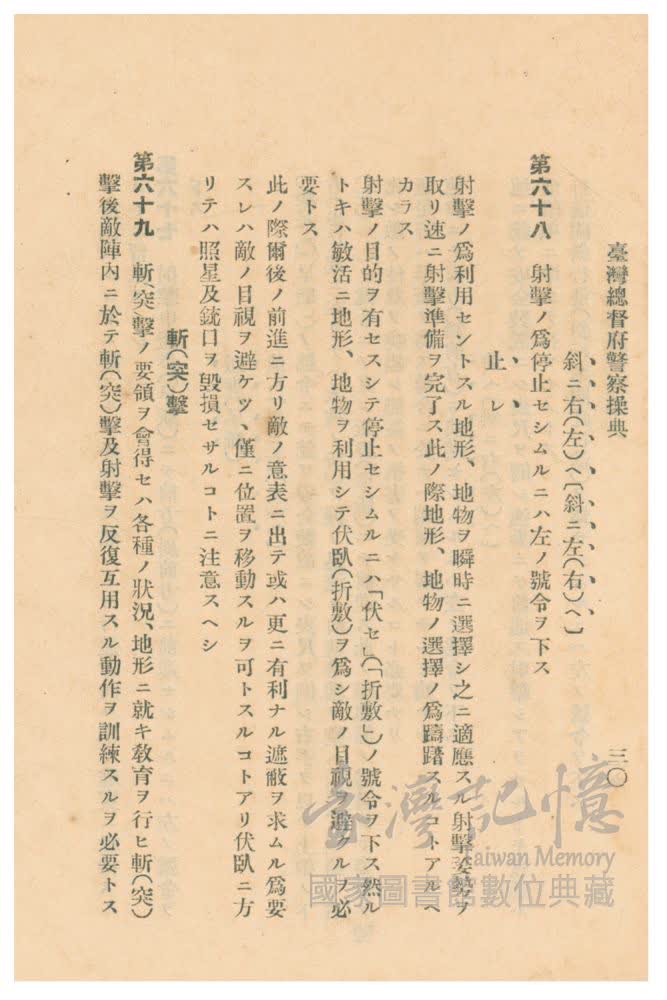 臺灣總督府警察操典
三〇
斜ニ右(左)ヘ〔斜ニ左(右)ヘ〕
第六十八　射擊ノ爲停止セシムルニハ左ノ號令ヲ下ス
止レ
射擊ノ爲利用セントスル地形、地物ヲ瞬時ニ選擇シ之ニ適應スル射擊姿勢ヲ
取リ速ニ射擊準備ヲ完了ス此ノ際地形、地物ノ選擇ノ爲躊躇スルコトアルヘ
カラス
射擊ノ目的ヲ有セスシテ停止セシムルニハ「伏セ」(「折敷」)ノ號令ヲ下ス然ル
トキハ敏活ニ地形、地物ヲ利用シテ伏臥(折敷)ヲ爲シ敵ノ目視ヲ避クルヲ必
要トス
此ノ際爾後ノ前進ニ方リ敵ノ意表ニ出テ或ハ更ニ有利ナル遮蔽ヲ求ムル爲要
スレハ敵ノ目視ヲ避ケツヽ僅ニ位置ヲ移動スルヲ可トスルコトアリ伏臥ニ方
リテハ照星及銃口ヲ毀損セサルコトニ注意スヘシ
斬(突)擊
第六十九　斬(突)擊ノ要領ヲ會得セハ各種ノ狀況、地形ニ就キ敎育ヲ行ヒ斬(突)
擊後敵陣內ニ於テ斬(突)擊及射擊ヲ反復互用スル動作ヲ訓練スルヲ必要トス
臺灣記憶
Taiwan Memory
國家圖書館數位典藏